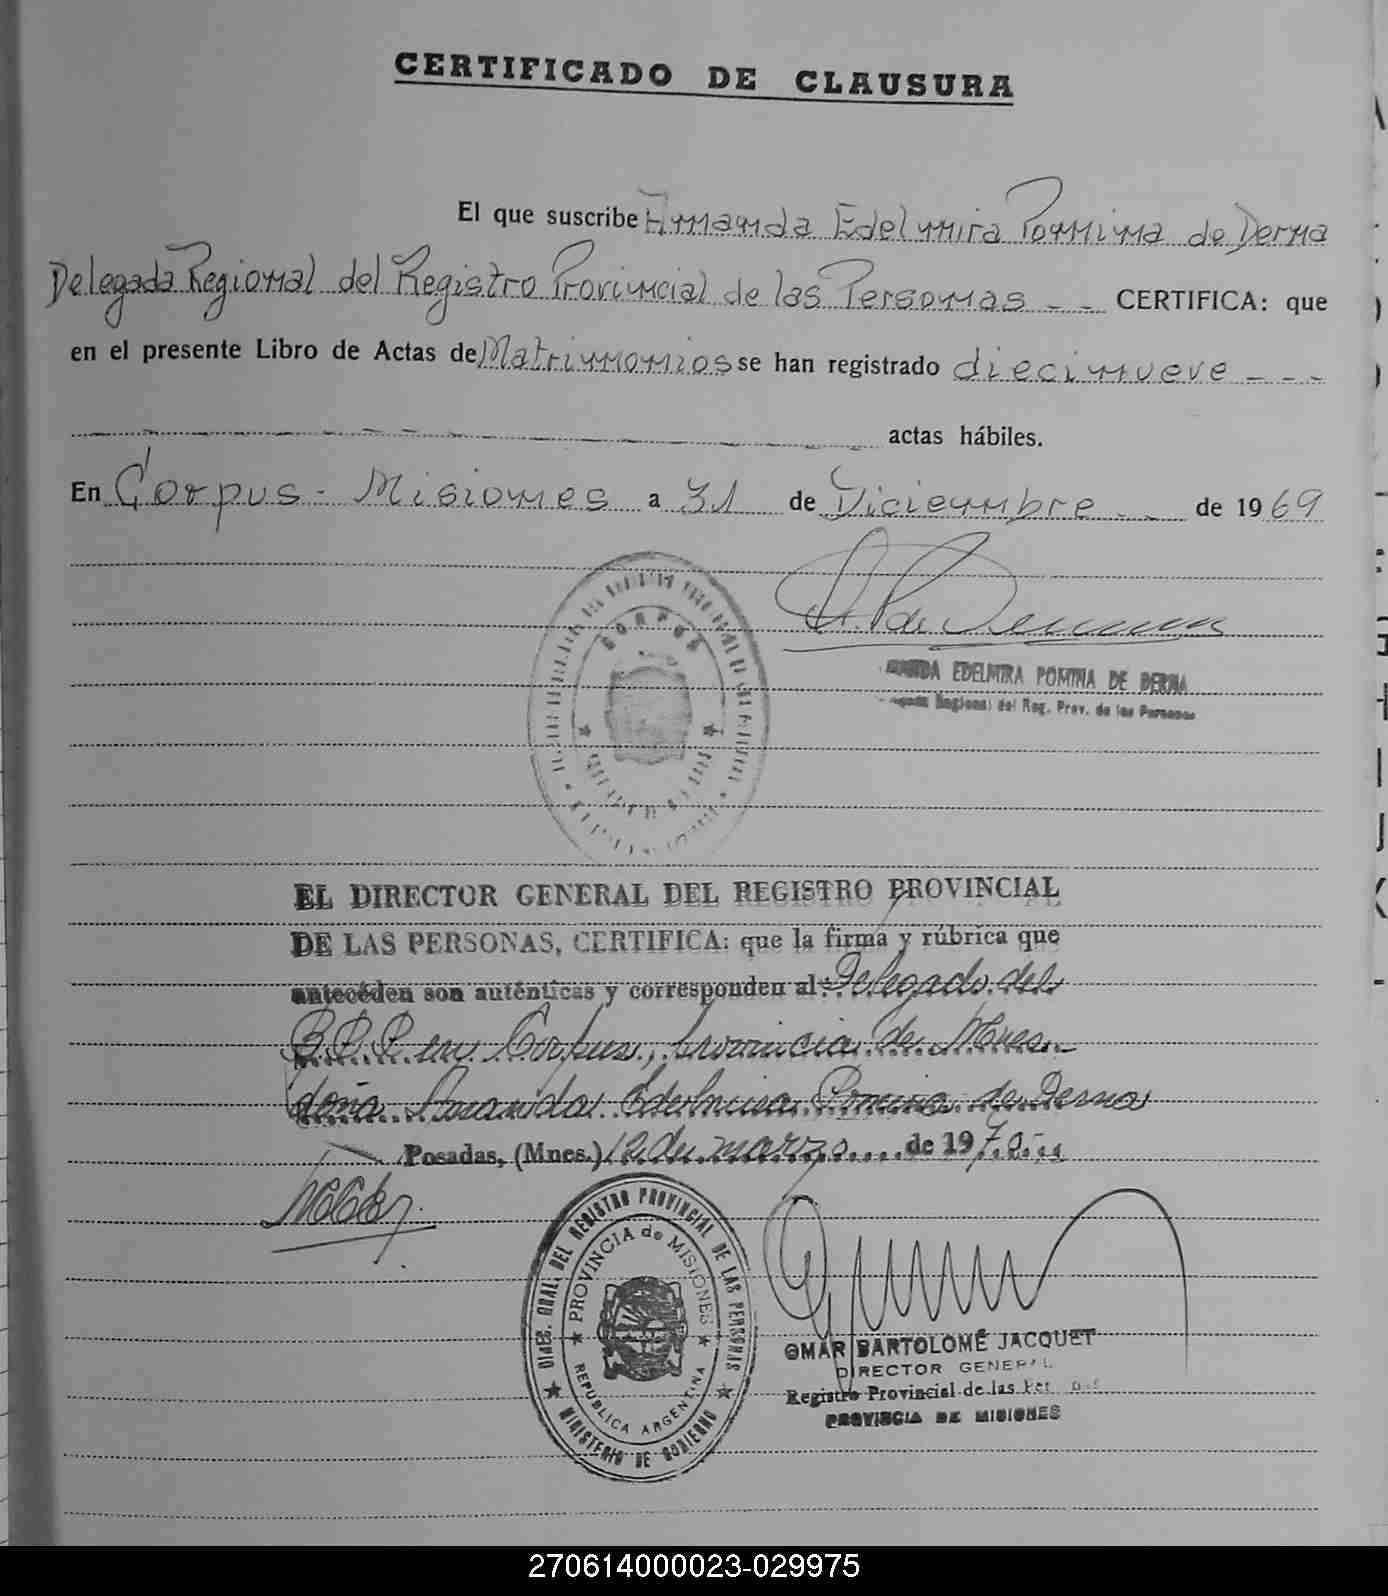 CERTIFICADO DE CLAUSURA
El que suscribe Amanda Edelmira Pomina de Derna
Delegada Regional del Registro Provincial de las Personas - - CERTIFICA: que
en el presente Libro de Actas de Matrimonios se han registrado diecinueve - - -
actas hábiles.
En Corpus - Misiones a 31 de Diciembre - - de 1969
CORPUS
EDELMIRA POMINA DE DERNA
Regional del Reg. Prov. de las Personas
EL DIRECTOR GENERAL DEL REGISTRO PROVINCIAL
DE LAS PERSONAS, CERTIFICA: que la firma y rúbrica que
anteceden son auténticas y corresponden al: Delegado del
R.P.P. en Corpus, provincia de Mnes.
doña Amanda Edelmira Pomina de Derna
Posadas, (Mnes.) 12 de marzo de 1970
DIREC. GRAL. DEL REGISTRO PROVINCIAL DE LAS PERSONAS
PROVINCIA de MISIONES
REPUBLICA ARGENTINA
MINISTERIO DE GOBIERNO
OMAR BARTOLOMÉ JACQUET
DIRECTOR GENERAL
Registro Provincial de las Personas
PROVINCIA DE MISIONES
270614000023-029975